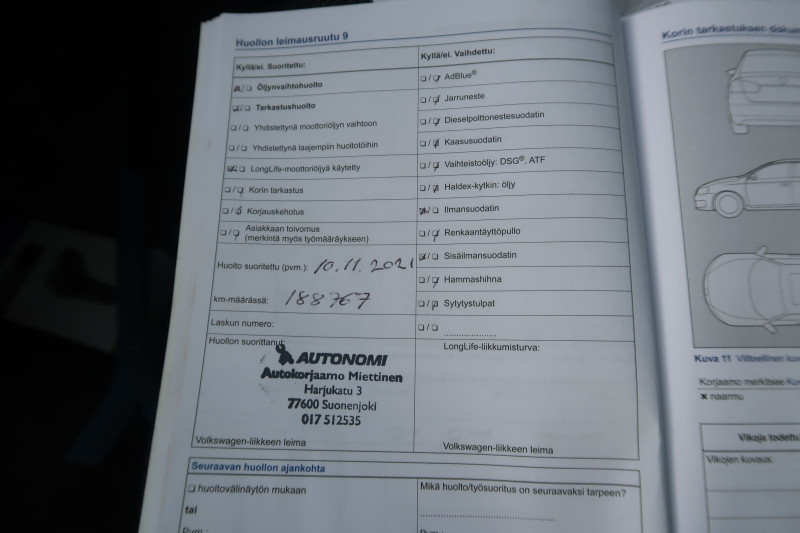 Huollon leimausruutu 9
Kyllä/ei. Suoritettu:
☒/☐ Öljynvaihtohuolto
☒/☐ Tarkastushuolto
☐/☐ Yhdistettynä moottoriöljyn vaihtoon
☐/☐ Yhdistettynä laajempiin huoltotöihin
☒/☐ LongLife-moottoriöljyä käytetty
☐/☒ Korin tarkastus
☐/☒ Korjauskehotus
☐/☒ Asiakkaan toivomus
(merkintä myös työmääräykseen)
Huolto suoritettu (pvm.): 10.11.2021
km-määrässä: 188767
Laskun numero:
Huollon suorittanut:
AUTONOMI
Autokorjaamo Miettinen
Harjukatu 3
77600 Suonenjoki
017 512535
Volkswagen-liikkeen leima
Kyllä/ei. Vaihdettu:
☐/☒ AdBlue®
☐/☒ Jarruneste
☐/☒ Dieselpolttonestesuodatin
☐/☒ Kaasusuodatin
☐/☒ Vaihteistoöljy: DSG®, ATF
☐/☒ Haldex-kytkin: öljy
☒/☐ Ilmansuodatin
☐/☒ Renkaantäyttöpullo
☒/☐ Sisäilmansuodatin
☐/☒ Hammashihna
☐/☒ Sytytystulpat
☐/☐ .....................
LongLife-liikkumisturva:
Volkswagen-liikkeen leima
Seuraavan huollon ajankohta
☐ huoltovälinäytön mukaan
tai
Pvm.:
Mikä huolto/työsuoritus on seuraavaksi tarpeen?
Korin tarkastuksen
Kuva 11 Viitteellinen
Korjaamo merkitsee
✕ naarmu
Vikoja
Vikojen kuvaus: